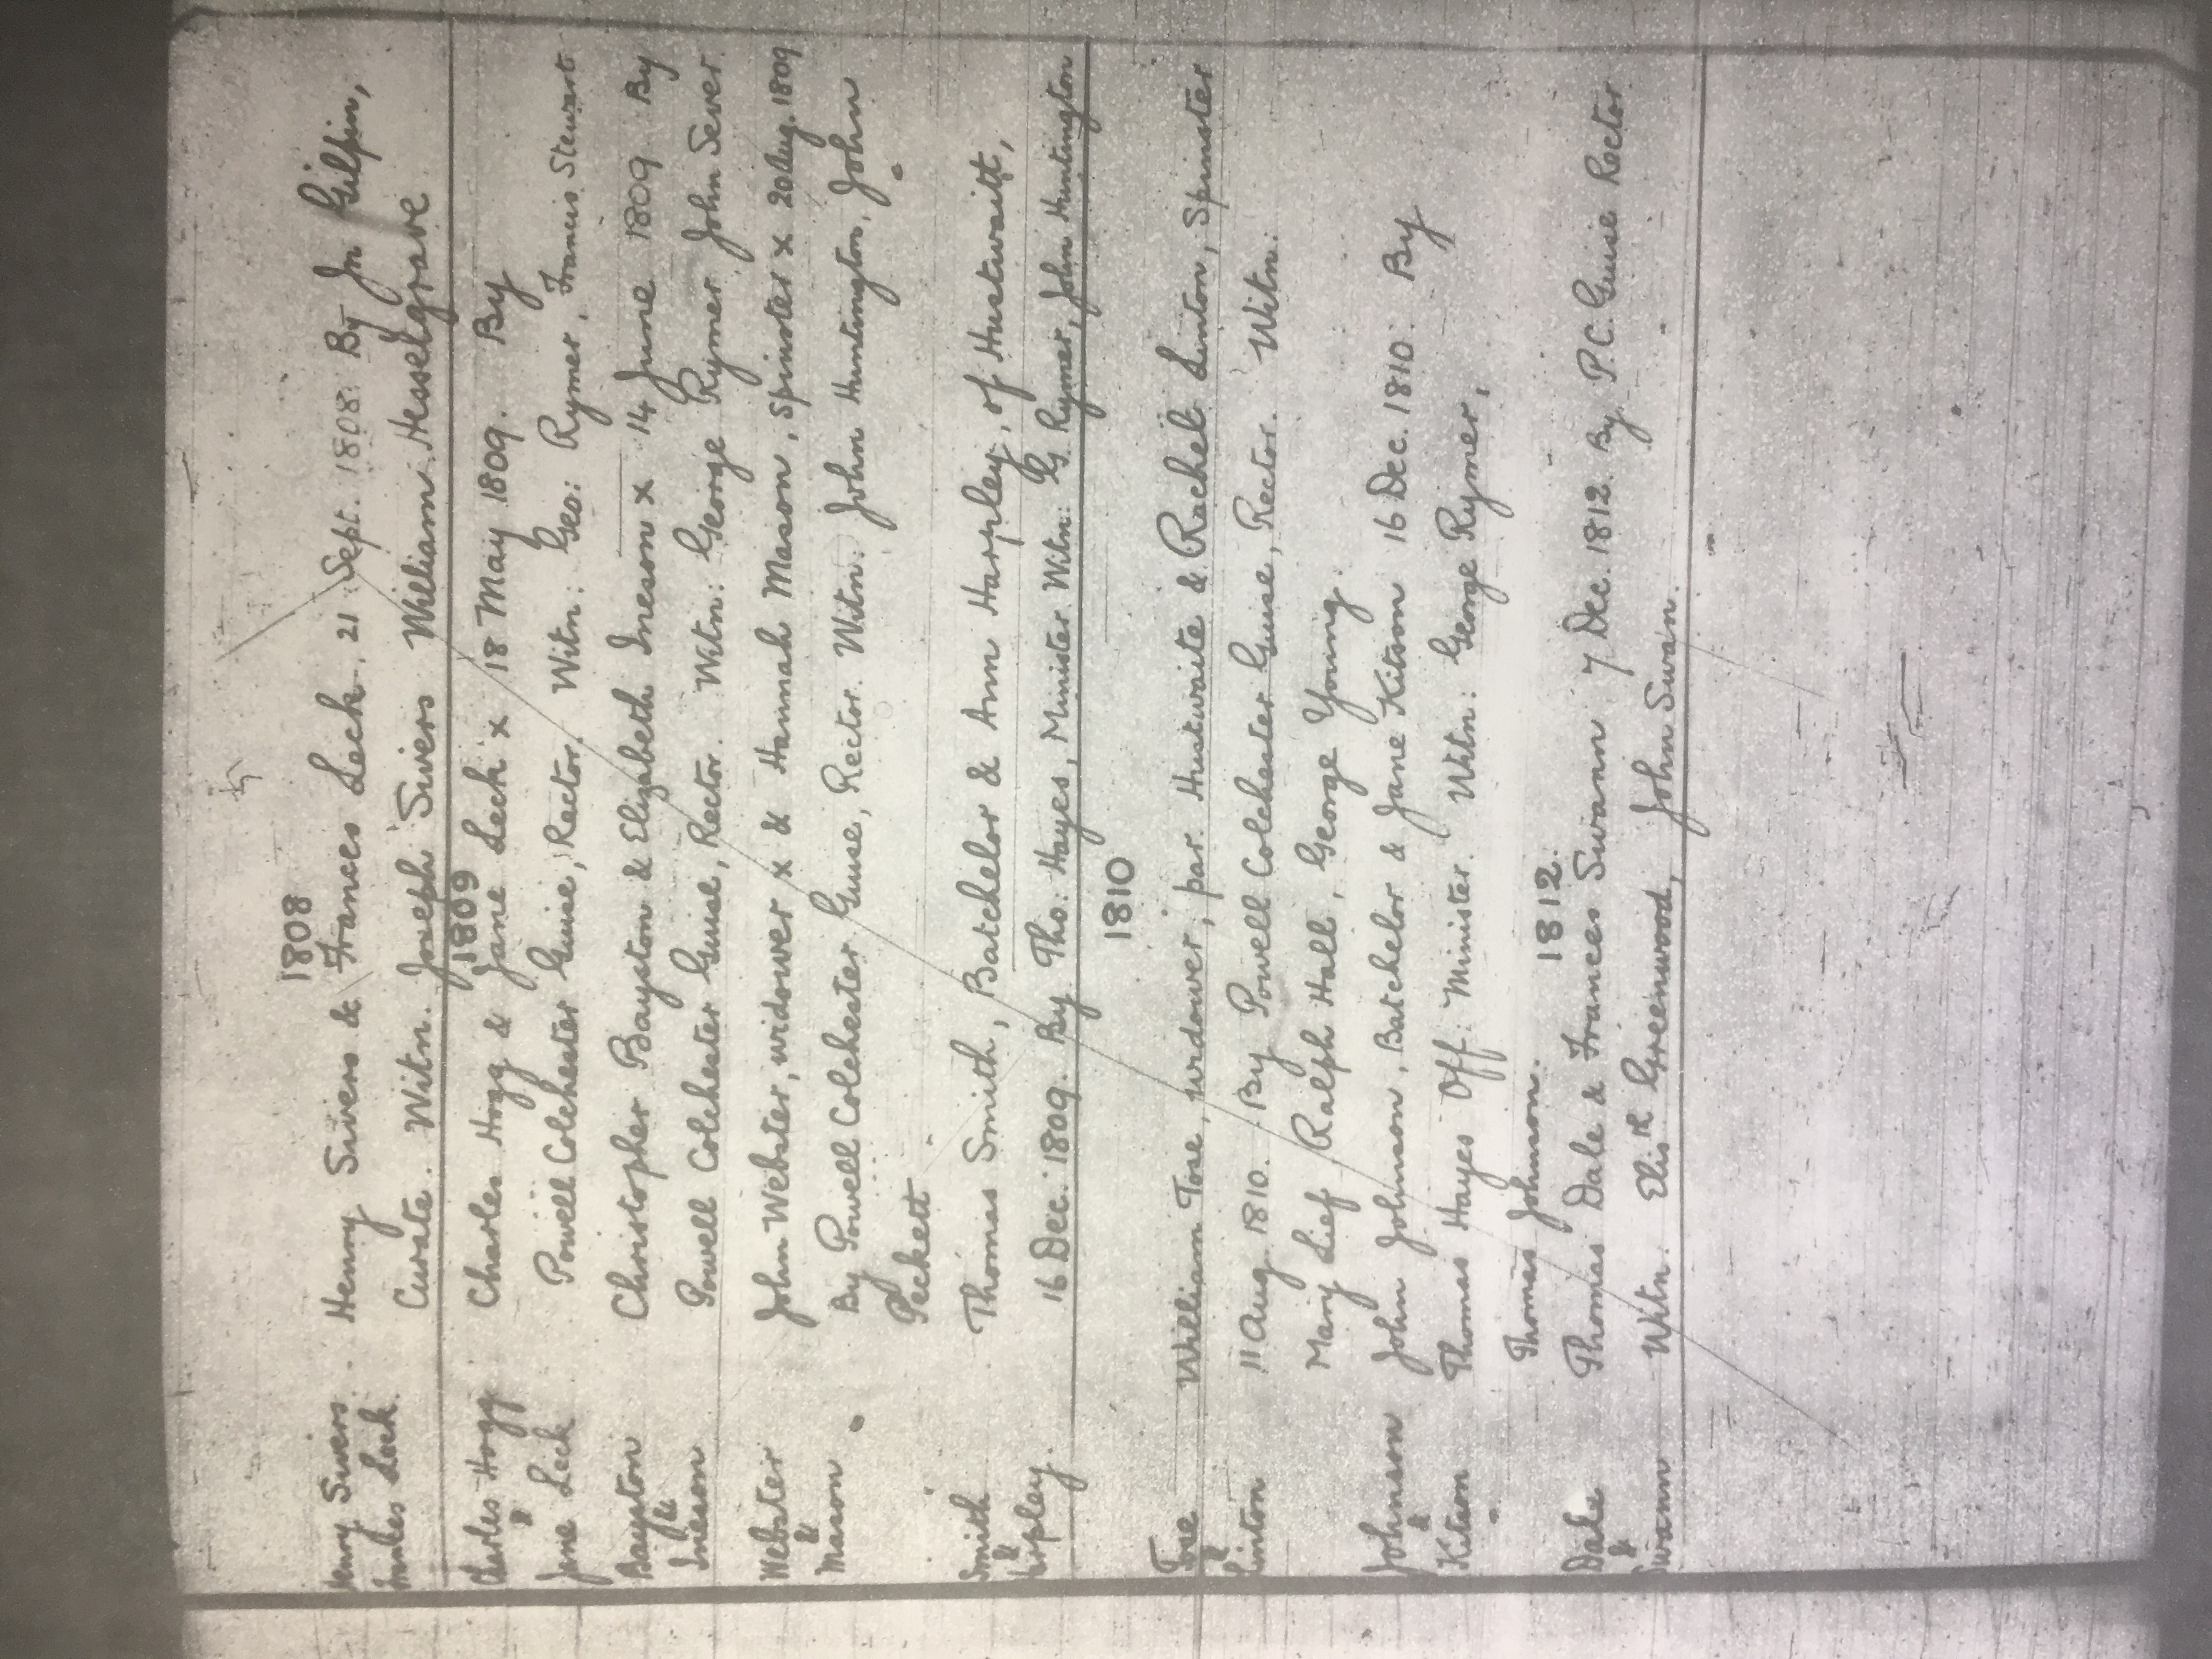 1808
Henry Sivers Henry Sivers & Frances Leck. 21 Sept. 1808. By Jn Gilpin,
Leck Curate. Witn. Joseph Sivers William Hesselgrave
1809
Charles Hogg Charles Hogg & Jane Leck x 18 May 1809. By
&
Jane Leck Powell Colchester Guise, Rector. Witn: Geo: Rymer, Francis Stewart
Bayston Christopher Bayston & Elizabeth Ineson x 14 June 1809 By
&
Ineson Powell Colchester Guise, Rector. Witn: George Rymer John Sever
Webster John Webster, widower x & Hannah Mason, Spinster x 20 Aug. 1809
&
Mason By Powell Colchester Guise, Rector. Witn: John Huntington, John
Peckett
Smith Thomas Smith, Batchelor & Ann Harpley, of Hustwaitt,
&
Harpley. 16 Dec. 1809. By Tho: Hayes, Minister Witn: G. Rymer, John Huntington
1810
Tose William Tose, widower, par. Hustwaite & Rachel Linton, Spinster
&
Linton 11 Aug. 1810. By Powell Colchester Guise, Rector. Witn.
Mary Lief Ralph Hall, George Young.
Johnson John Johnson, Batchelor & Jane Kitson 16 Dec. 1810. By
&
Kitson Thomas Hayes Off. Minister. Witn: George Rymer,
Thomas Johnson.
1812.
Dale Thomas Dale & Frances Swann 7 Dec. 1812. By P.C. Guise Rector
&
Swann Witn. Elisth Greenwood, John Swan.